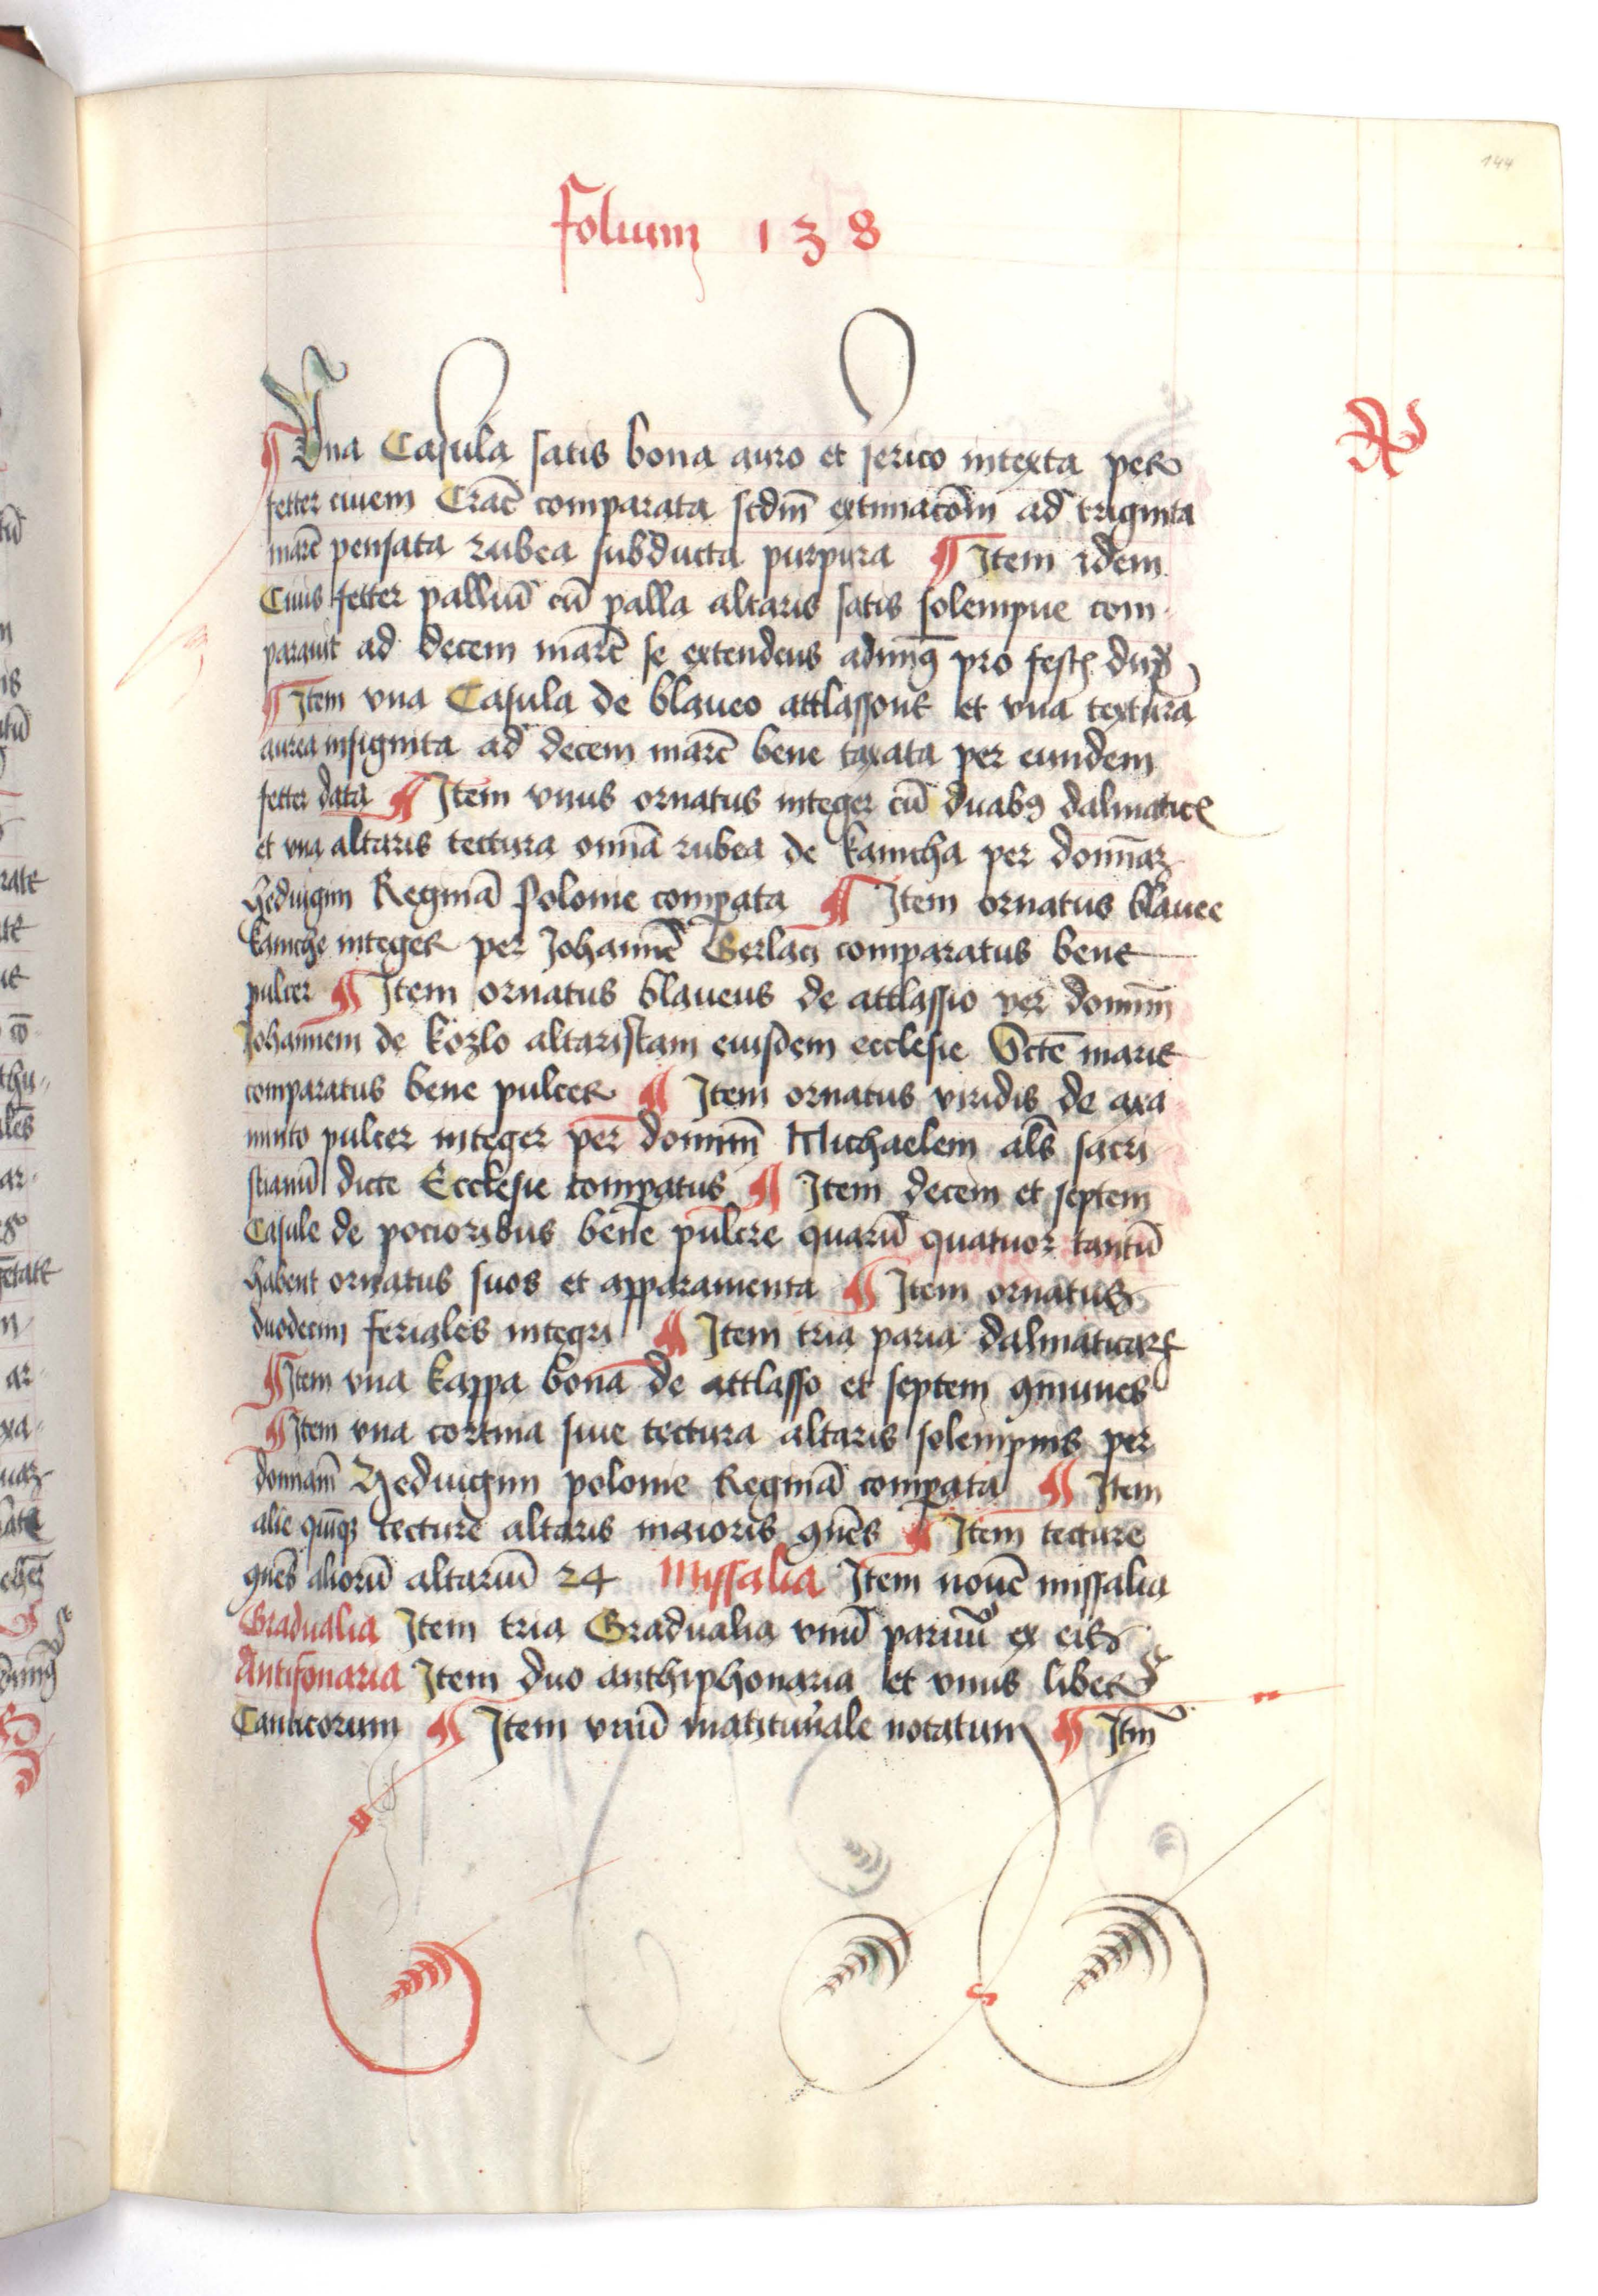 144
folium 138
¶ Una Casula satis bona auro et serico intexta per
fetter civem Crac̄ comparata scdm̄ extimacōm ad triginta
marc̄ pensata rubea subducta purpura ¶ Item idem
Civis fetter palliū cū palla altaris satis solempne com
paravit ad decem marc̄ se extendens pro fest dup
¶ Item una Casula de blaveo attlassone et una textura
aurea insignita ad decem marc̄ bene taxata per eundem
fetter data ¶ Item unus ornatus integer cū duabꝯ dalmatic
et una altaris tectura omā rubea de kamcha per domnā
Hedvigim Reginā Polonie compata ¶ Item ornatus blavee
kamche integer per Johannē Gerlaci comparatus bene
pulcer ¶ Item ornatus blaveus de attlassio per domnm̄
Johannem de kozlo altaristam eiusdem ecclesie Sctē marie
comparatus bene pulcer ¶ Item ornatus viridis de axa
minto pulcer integer per domnm̄ Michaelem als̄ sacri
stianū dicte Ecclesie compatus ¶ Item decem et septem
Casule de pocioribus bene pulcre quarū quatuor tantū
habent ornatus suos et apparamenta ¶ Item ornatus
duodecim feriales integri ¶ Item tria paria dalmaticarꝝ
¶ Item una kappa bona de attlasso et septem ꝯmunes
¶ Item una cortina sive tectura altaris solempnis per
domnam̄ Hedvigim polonie Reginā compata ¶ Item
alie quīqꝫ tecture altaris maioris ꝯnēs ¶ Item tecture
ꝯnēs aliorū altariū 24 Missalia Item novē missalia
Gradualia Item tria Gradualia unū parvuū ex eis
Antifonaria Item duo anthiphonaria et unus liber
Canticorum ¶ Item unū matituvale notatum ¶ Itm̄